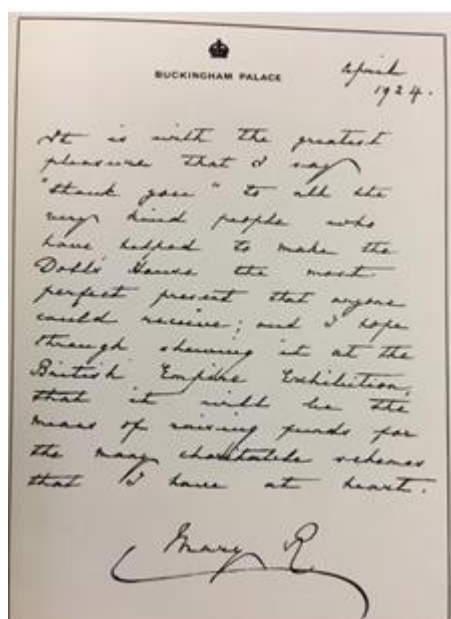 BUCKINGHAM PALACE
April
1924.
It is with the greatest
pleasure that I say
"thank you" to all the
very kind people who
have helped to make the
Doll's House the most
perfect present that anyone
could receive; and I hope
through shewing it at the
British Empire Exhibition,
that it will be the
means of raising funds for
the many charitable schemes
that I have at heart.
Mary R.